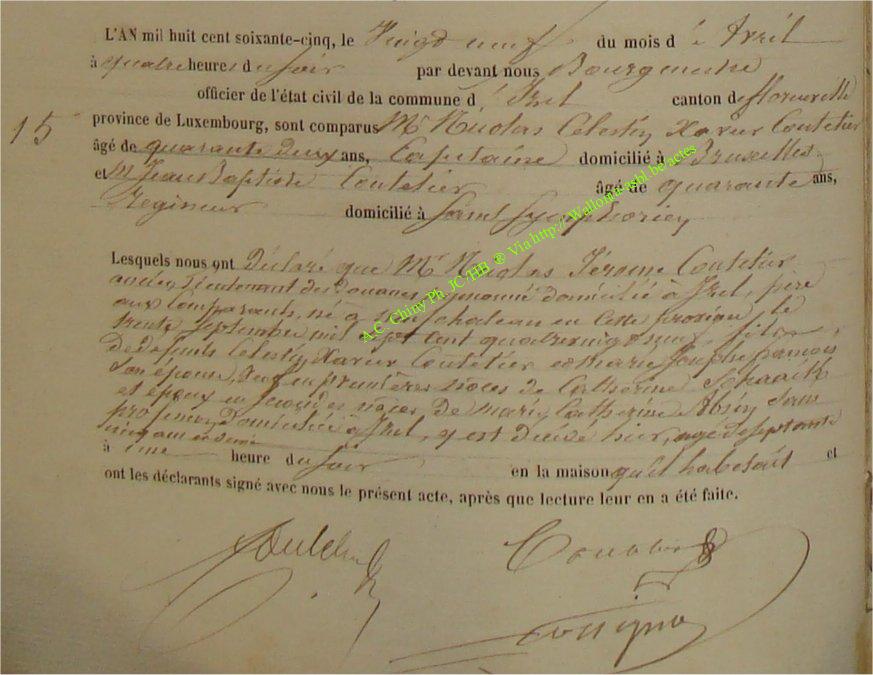 L'AN mil huit cent soixante-cinq, le Vingt neuf du mois d'Avril
à quatre heures du soir par devant nous Bourgmestre
officier de l'état civil de la commune d'Izel canton de florenville
15
province de Luxembourg, sont comparus Mr Nicolas Celestin Xavier Coutelier
âgé de quarante deux ans, Capitaine domicilié à Bruxelles
et M Jean Baptiste Coutelier âgé de quarante ans,
Regisseur domicilié à Saint Symphorien
Lesquels nous ont Déclaré que Mr Nicolas Jérome Coutelier
ancien Lieutenant des Douanes, domicilié à Izel, père
aux comparants, né à château en cette province le
trente Septembre mil sept cent quatrevingt neuf, fils
de defunts Celestin Xavier Coutelier et Marie Josephe françois
son épouse, Veuf en premières noces de Catherine Schaack
et époux en secondes noces de Marie Catherine sans
profession domiciliée à Izel, y est décédé hier, agé de septante
cinq ans
à une heure du soir en la maison qu'il habitait et
ont les déclarants signé avec nous le présent acte, après que lecture leur en a été faite.
A.C. Chiny Ph. JC HB ® Via http:// Wallonia asbl.be actes